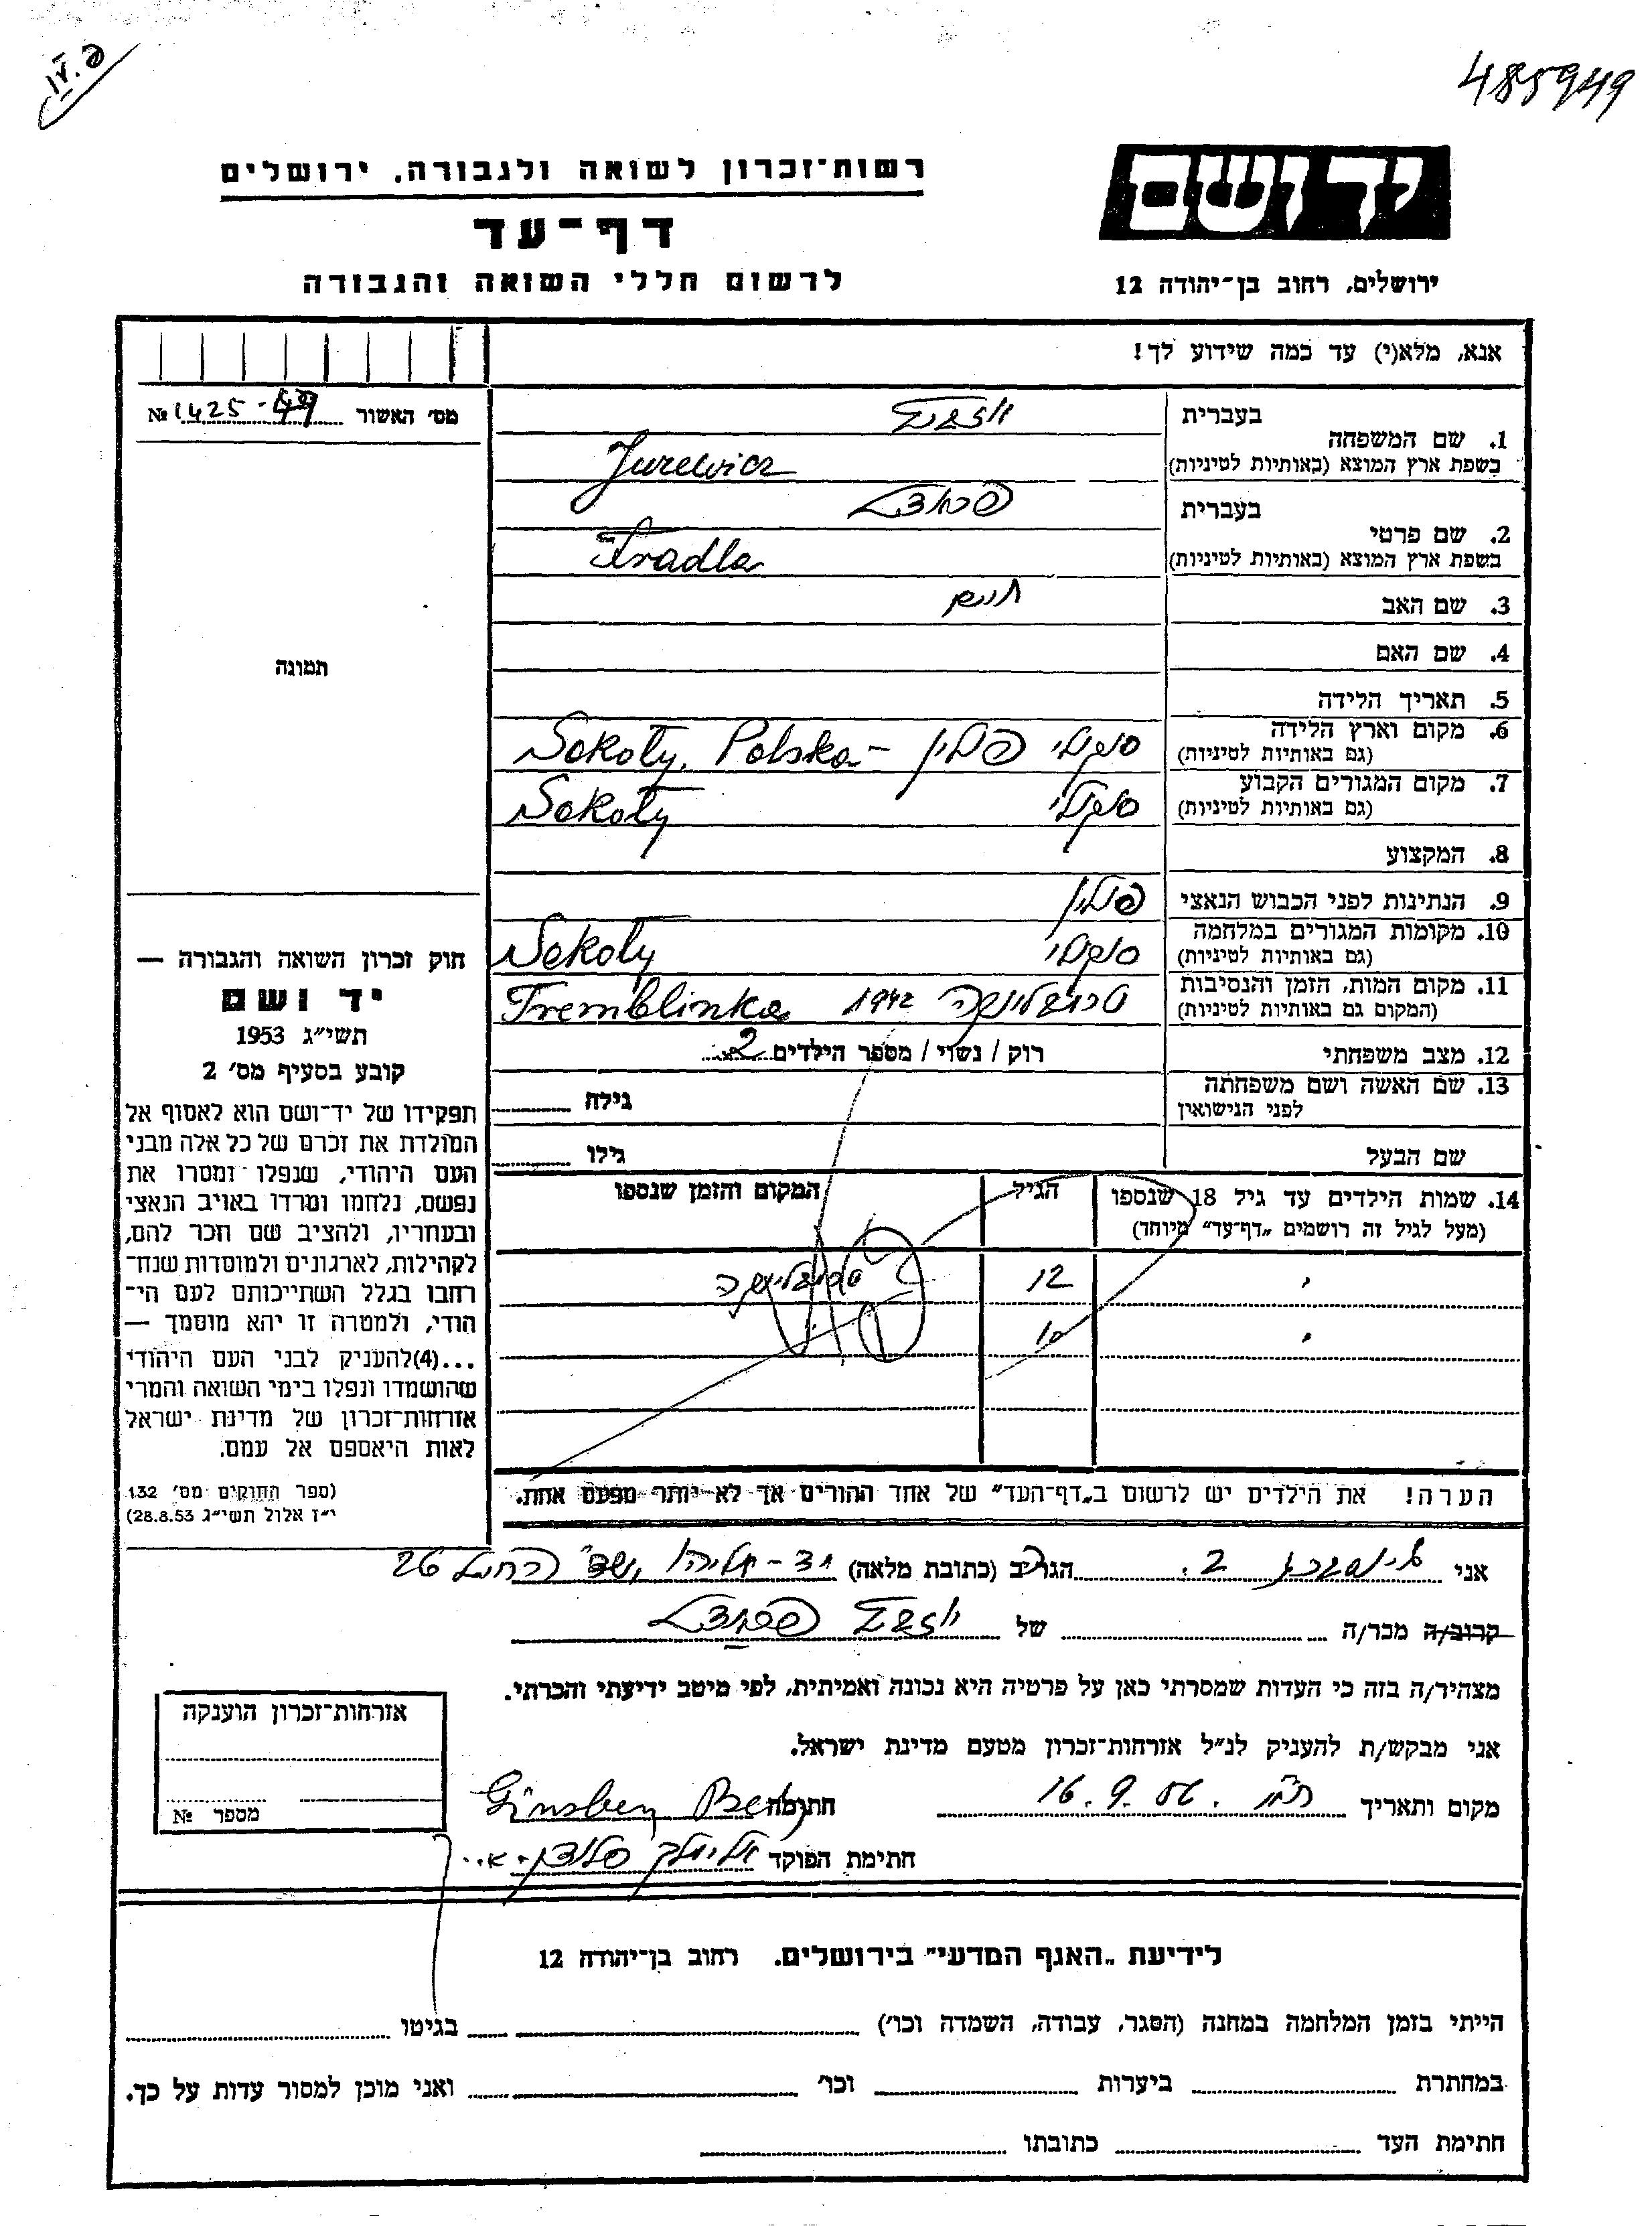 485949
יד ושם
ירושלים, רחוב בן-יהודה 12
רשות-זכרון לשואה ולגבורה, ירושלים
דף-עד
לרשום חללי השואה והגבורה
אנא, מלא(י) עד כמה שידוע לך!
מס' האשור № 1425-49
1. שם המשפחה
בעברית
בשפת ארץ המוצא (באותיות לטיניות) Jurewicz
2. שם פרטי
בעברית פראדל
בשפת ארץ המוצא (באותיות לטיניות) Fradla
3. שם האב חיים
4. שם האם
5. תאריך הלידה
6. מקום וארץ הלידה
(גם באותיות לטיניות) סוקולי פולין - Sokoły, Polska
7. מקום המגורים הקבוע
(גם באותיות לטיניות) סוקולי Sokoły
8. המקצוע
9. הנתינות לפני הכבוש הנאצי פולין
10. מקומות המגורים במלחמה
(גם באותיות לטיניות) סוקולי Sokoły
11. מקום המות, הזמן והנסיבות
(המקום גם באותיות לטיניות) טרמבלינקה 1942 Tremblinka
12. מצב משפחתי רוק / נשוי / מספר הילדים 2
13. שם האשה ושם משפחתה
לפני הנישואין גילה
שם הבעל גילו
14. שמות הילדים עד גיל 18 שנספו
(מעל לגיל זה רושמים „דף-עד" מיוחד)
הגיל
המקום והזמן שנספו
12 טרמבלינקה
10
הערה! את הילדים יש לרשום ב„דף-העד" של אחד ההורים אך לא יותר מפעם אחת.
תמונה
חוק זכרון השואה והגבורה —
יד ושם
תשי"ג 1953
קובע בסעיף מס' 2
תפקידו של יד-ושם הוא לאסוף אל
המולדת את זכרם של כל אלה מבני
העם היהודי, שנפלו ומסרו את
נפשם, נלחמו ומרדו באויב הנאצי
ובעוזריו, ולהציב שם וזכר להם,
לקהילות, לארגונים ולמוסדות שנח-
רבו בגלל השתייכותם לעם הי-
הודי, ולמטרה זו יהא מוסמך —
...(4)להעניק לבני העם היהודי
שהושמדו ונפלו בימי השואה והמרי
אזרחות-זכרון של מדינת ישראל
לאות היאספם אל עמם.
(ספר החוקים מס' 132
י"ז אלול תשי"ג 28.8.53)
אני גינזברג ב. הגר/ב (כתובת מלאה) יד-אליהו 26
קרוב/ה מכר/ה של פראדל
מצהיר/ה בזה כי העדות שמסרתי כאן על פרטיה היא נכונה ואמיתית, לפי מיטב ידיעתי והכרתי.
אני מבקש/ת להעניק לנ"ל אזרחות-זכרון מטעם מדינת ישראל.
מקום ותאריך 16.9.56 חתימה
חתימת הפוקד
אזרחות-זכרון הוענקה
מספר №
לידיעת „האגף המדעי" בירושלים. רחוב בן-יהודה 12
הייתי בזמן המלחמה במחנה (הסגר, עבודה, השמדה וכו') בגיטו
במחתרת ביערות וכו' ואני מוכן למסור עדות על כך.
חתימת העד כתובתו